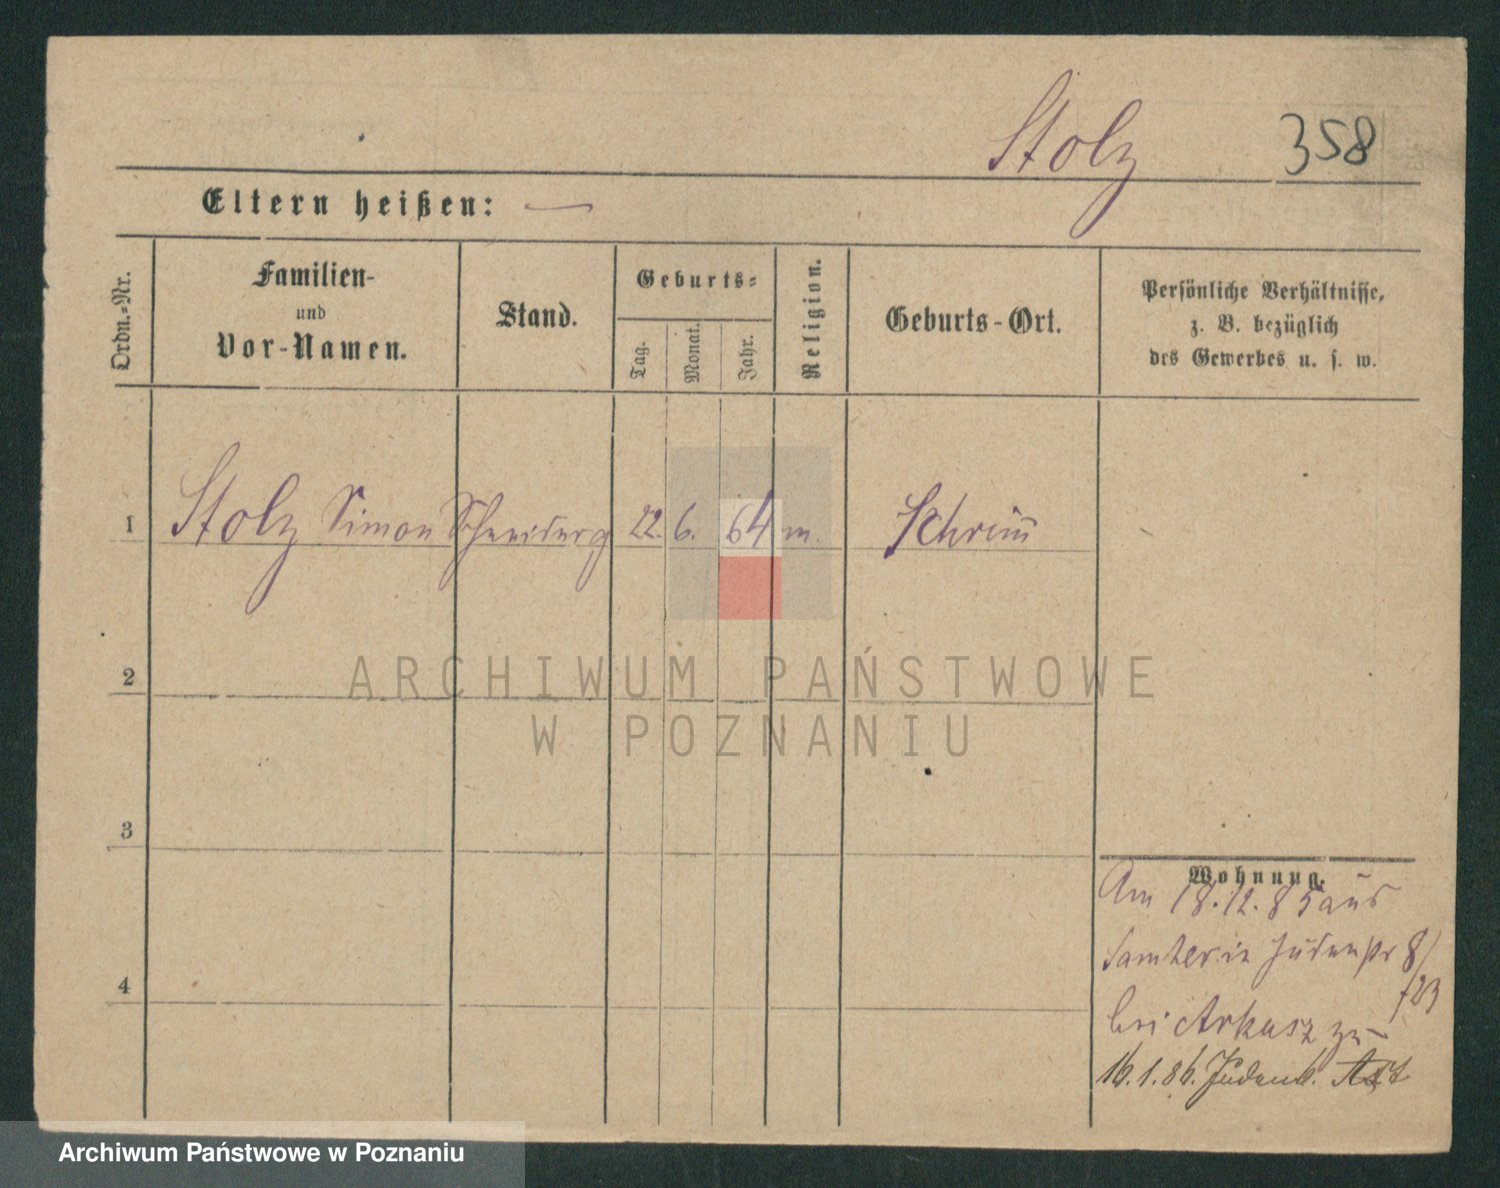 Stolz 358
Eltern heißen: —
Ordn.-Nr.
Familien-
und
Vor-Namen.
Stand.
Geburts-
Tag.
Monat.
Jahr.
Religion.
Geburts-Ort.
Persönliche Verhältnisse,
z. B. bezüglich
des Gewerbes u. s. w.
1 Stolz Simon Schneiderg 22. 6. 64 m. Schrimm
2
3
4
Wohnung.
Am 18.12.85 aus
Samter in Judenstr 8/
bei Arkusz zu
16.1.86. Judenb.
ARCHIWUM PAŃSTWOWE
W POZNANIU
Archiwum Państwowe w Poznaniu